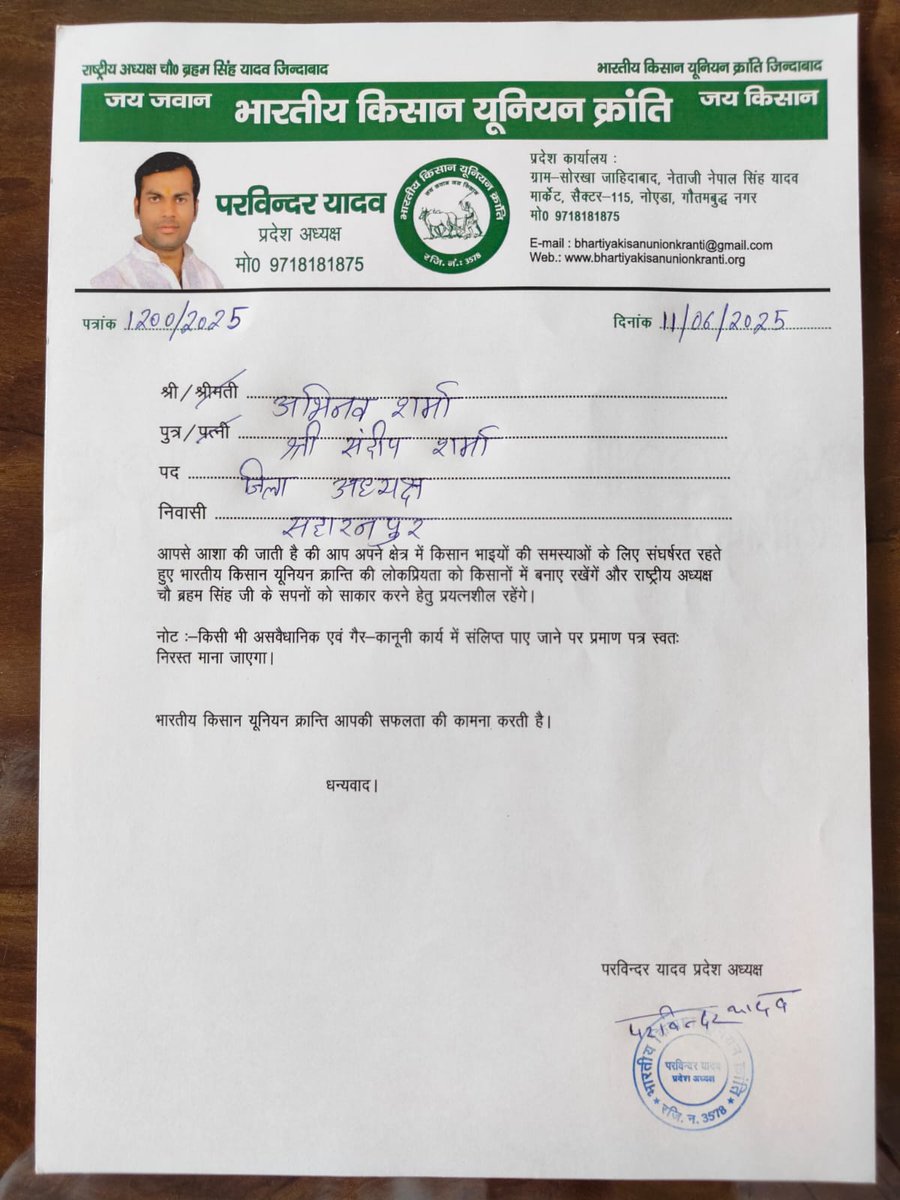 राष्ट्रीय अध्यक्ष चौ० ब्रहम सिंह यादव जिन्दाबाद
भारतीय किसान यूनियन क्रांति जिन्दाबाद
जय जवान
भारतीय किसान यूनियन क्रांति
जय किसान
परविन्दर यादव
प्रदेश अध्यक्ष
मो0 9718181875
भारतीय किसान यूनियन क्रांति
जय जवान जय किसान
रजि. नं.: 3578
प्रदेश कार्यालय :
ग्राम–सोरखा जाहिदाबाद, नेताजी नेपाल सिंह यादव
मार्केट, सैक्टर–115, नोएडा, गौतमबुद्ध नगर
मो0 9718181875
E-mail : bhartiyakisanunionkranti@gmail.com
Web.: www.bhartiyakisanunionkranti.org
पत्रांक 1200/2025
दिनांक 11/06/2025
श्री / श्रीमती अभिनव शर्मा
पुत्र / पत्नी श्री संदीप शर्मा
पद जिला अध्यक्ष
निवासी सहारनपुर
आपसे आशा की जाती है की आप अपने क्षेत्र में किसान भाइयों की समस्याओं के लिए संघर्षरत रहते
हुए भारतीय किसान यूनियन क्रान्ति की लोकप्रियता को किसानों में बनाए रखेंगें और राष्ट्रीय अध्यक्ष
चौ ब्रहम सिंह जी के सपनों को साकार करने हेतु प्रयत्नशील रहेंगे।
नोट :–किसी भी असवैधानिक एवं गैर–कानूनी कार्य में संलिप्त पाए जाने पर प्रमाण पत्र स्वतः
निरस्त माना जाएगा।
भारतीय किसान यूनियन क्रान्ति आपकी सफलता की कामना करती है।
धन्यवाद।
परविन्दर यादव प्रदेश अध्यक्ष
परविन्दर यादव
भारतीय किसान यूनियन क्रांति
परविन्दर यादव
प्रदेश अध्यक्ष
रजि. न. 3578